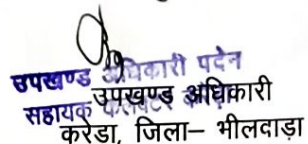 उपखण्ड अधिकारी पदेन
सहायक कलेक्टर
उपखण्ड अधिकारी
करेडा, जिला– भीलवाड़ा